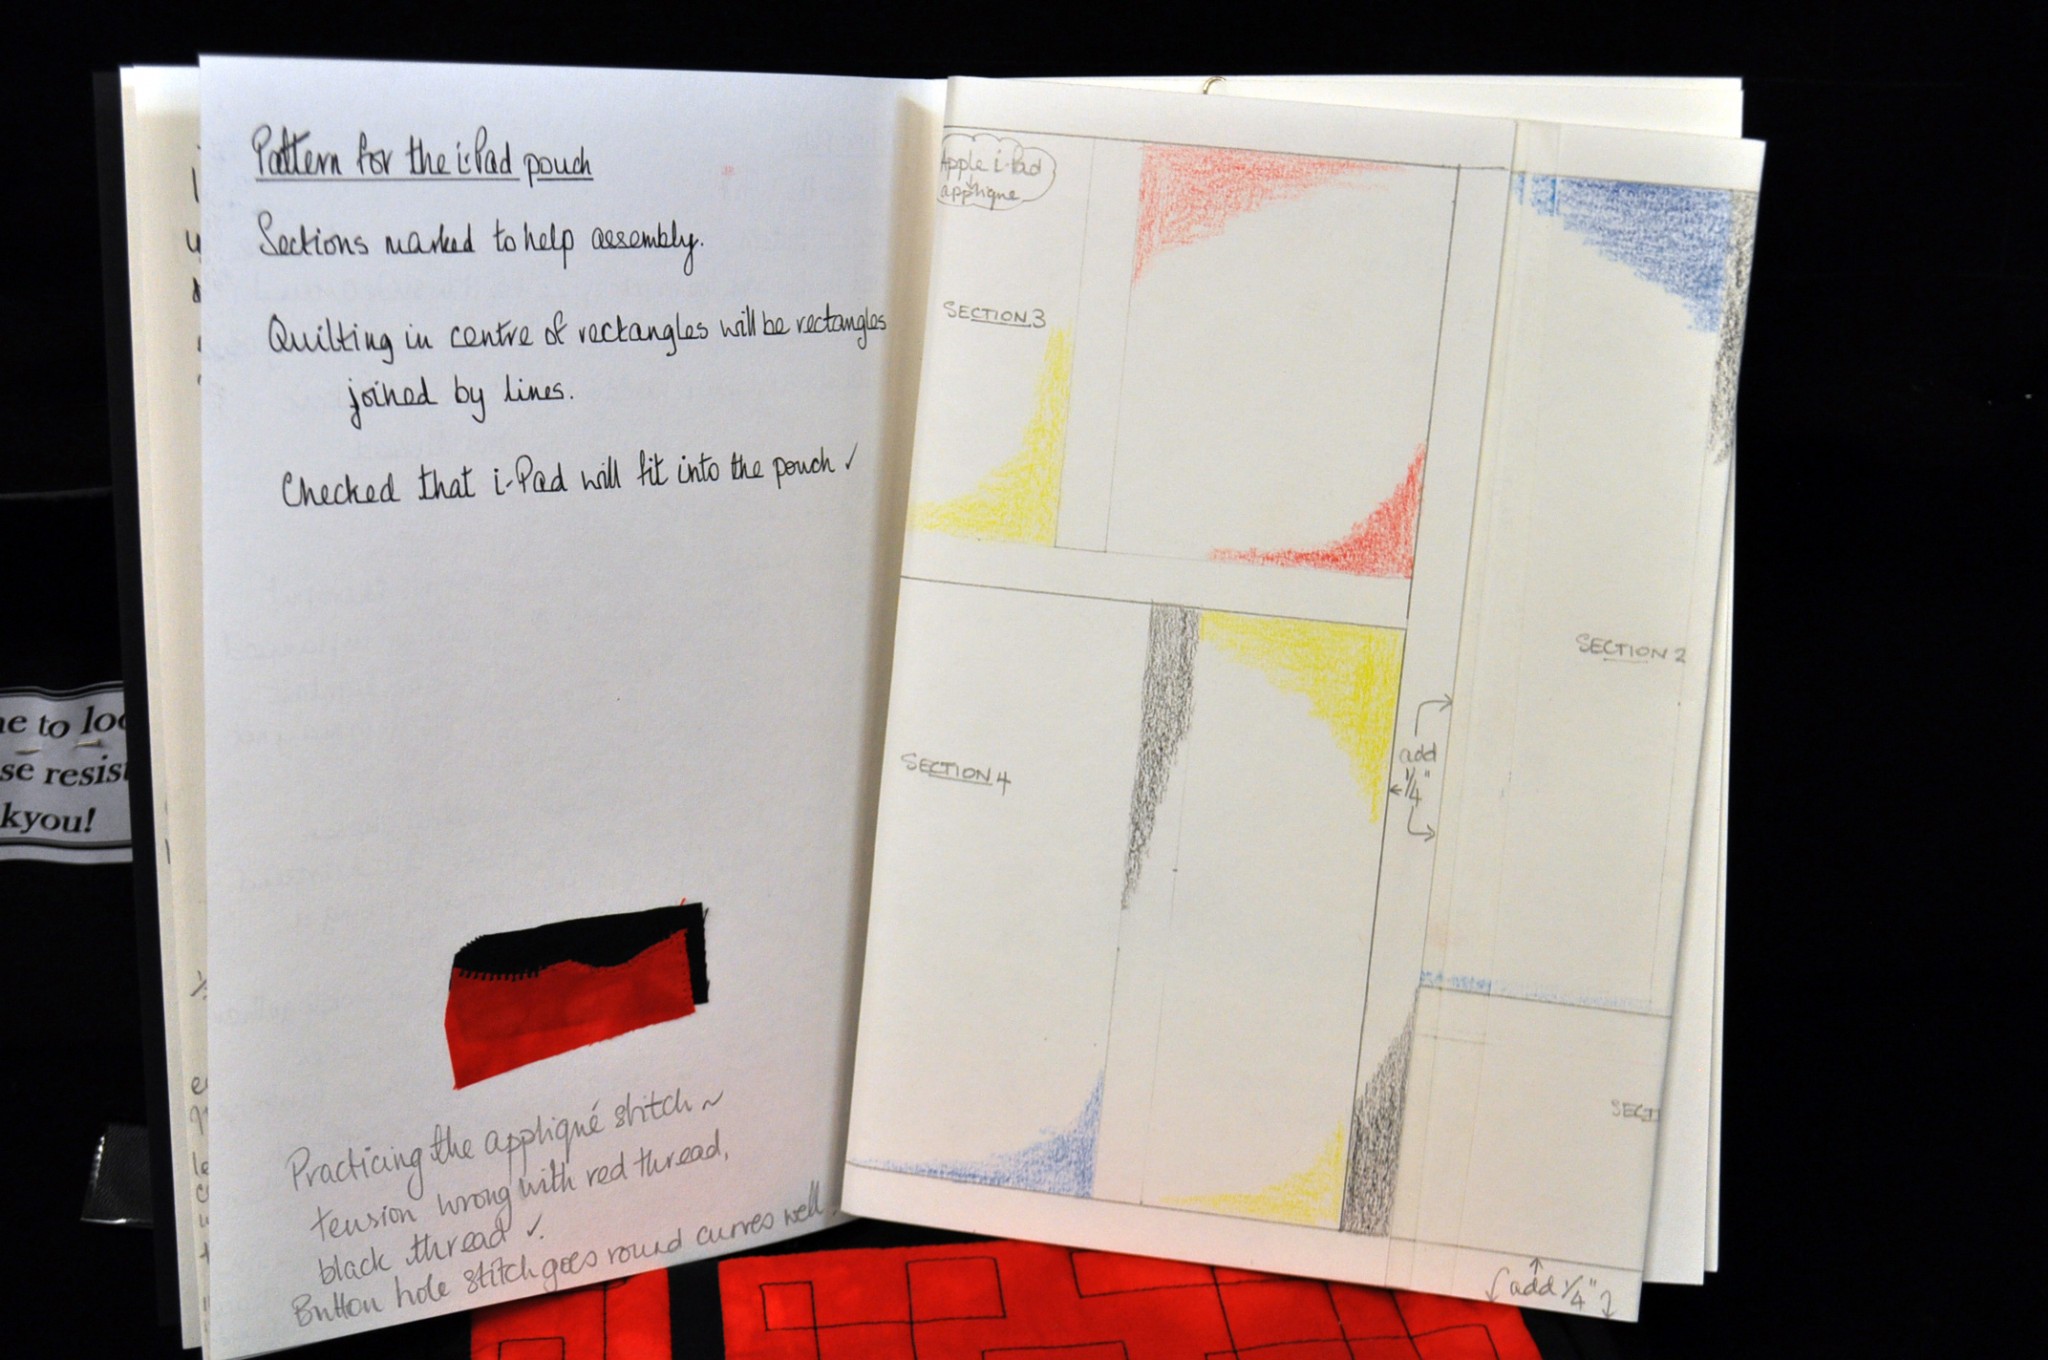 Pattern for the i-Pad pouch
Sections marked to help assembly.
Quilting in centre of rectangles will be rectangles
joined by lines.
Checked that i-Pad will fit into the pouch ✓
Practicing the appliqué stitch ~
tension wrong with red thread,
black thread ✓.
Button hole stitch goes round curves well.
Apple i-Pad
applique
SECTION 3
SECTION 4
SECTION 2
add
1/4"
SECTI
add 1/4"
to loo
resist
kyou!